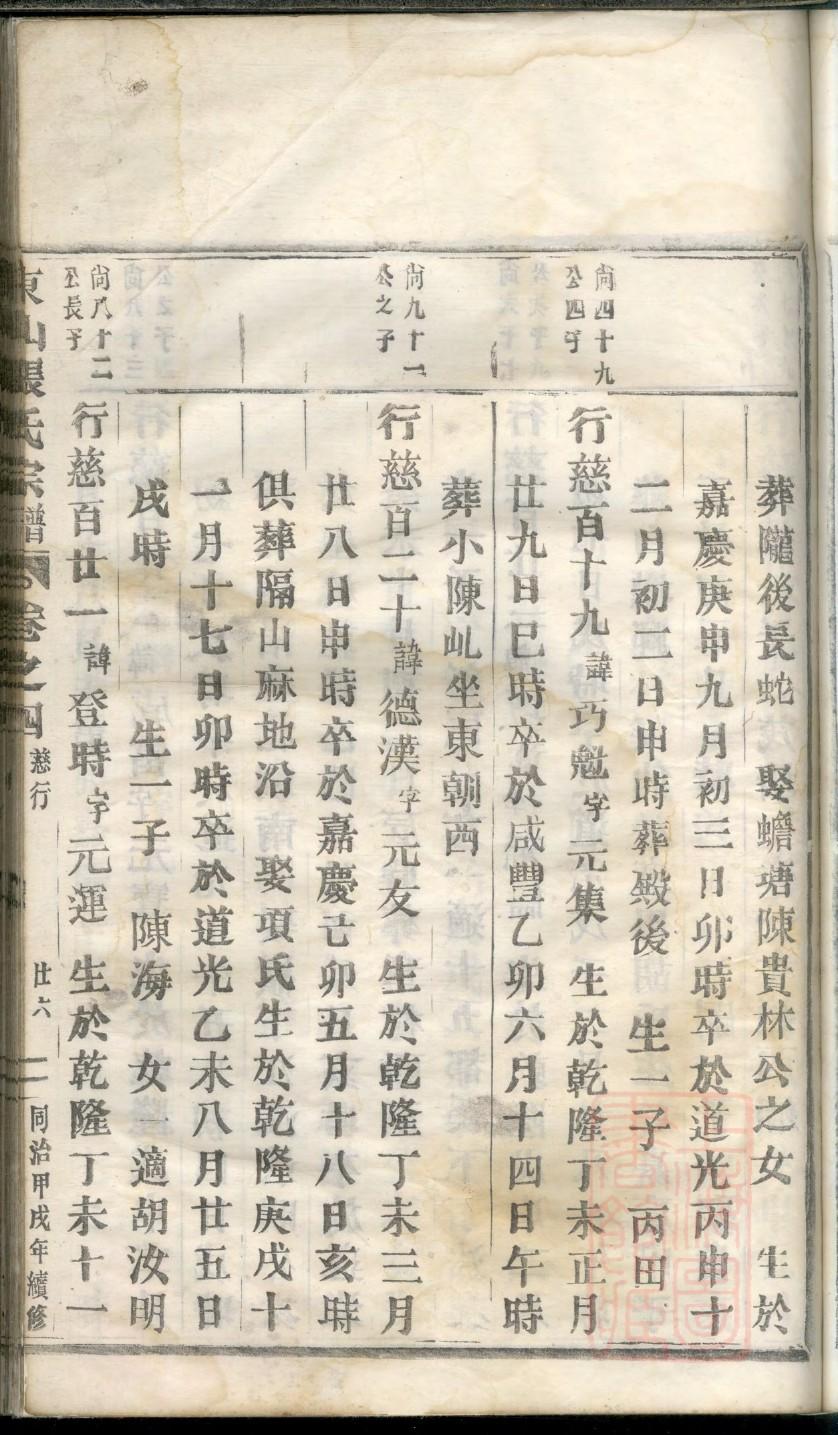 葬隴後長蛇 娶蟾塘陳貴林公之女 生於
嘉慶庚申九月初三日卯時卒於道光丙申十
二月初二日申時葬殿後 生一子 丙田
尚四十九
公四子
行慈百十九諱巧魁字元集 生於乾隆丁未正月
廿九日巳時卒於咸豐乙卯六月十四日午時
葬小陳乢坐東朝西
尚九十一
公之子
行慈百二十諱德漢字元友 生於乾隆丁未三月
廿八日申時卒於嘉慶己卯五月十八日亥時
俱葬隔山麻地沿 娶項氏生於乾隆庚戌十
一月十七日卯時卒於道光乙未八月廿五日
戌時 生一子 陳海 女一適胡汝明
尚八十二
公長子
行慈百廿一諱登時字元運 生於乾隆丁未十一
東山張氏宗譜 卷之四 慈行 廿六 同治甲戌年續修